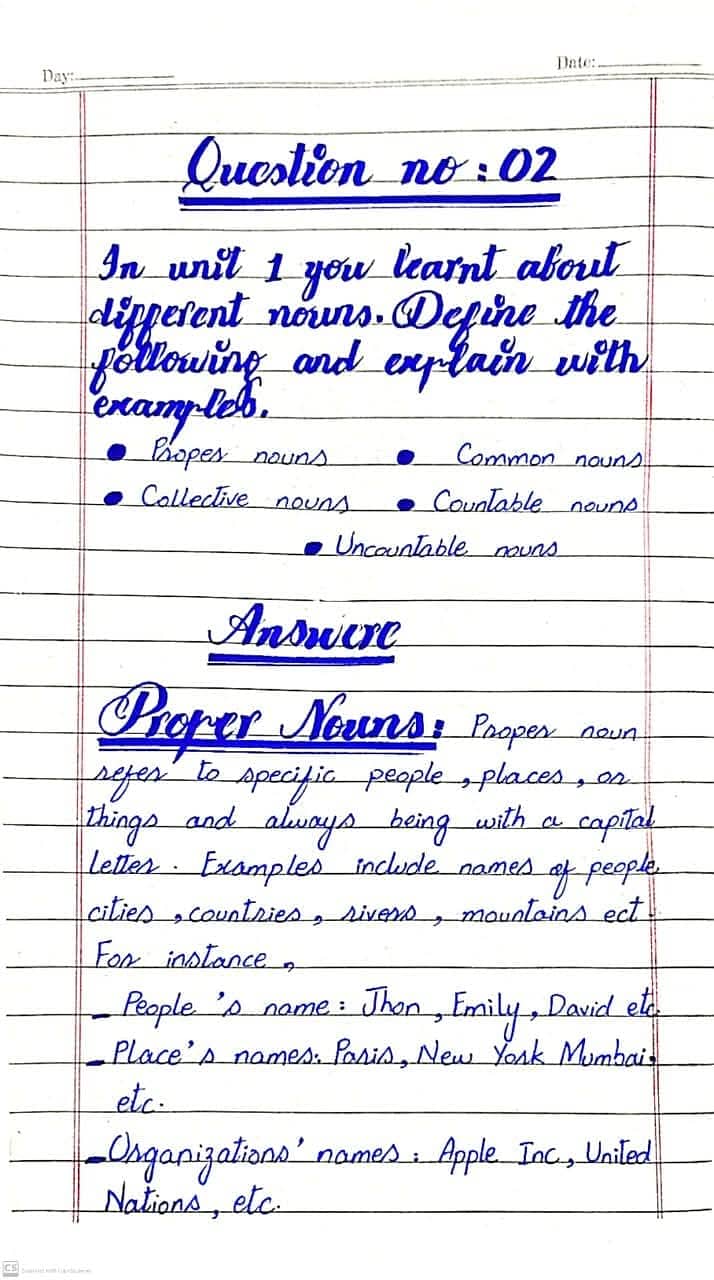 Day:
Date:
Question no : 02
In unit 1 you learnt about
different nouns. Define the
following and explain with
examples.
• Proper nouns • Common nouns
• Collective nouns • Countable nouns
• Uncountable nouns
Answere
Proper Nouns: Proper noun
refer to specific people , places , or
things and always being with a capital
letter . Examples include names of people,
cities , countries , rivers , mountains ect .
For instance ,
– People 's name : Jhon , Emily , David etc.
– Place's names: Paris, New York Mumbai,
etc.
– Organizations' names : Apple Inc , United
Nations , etc.
CS Scanned with CamScanner